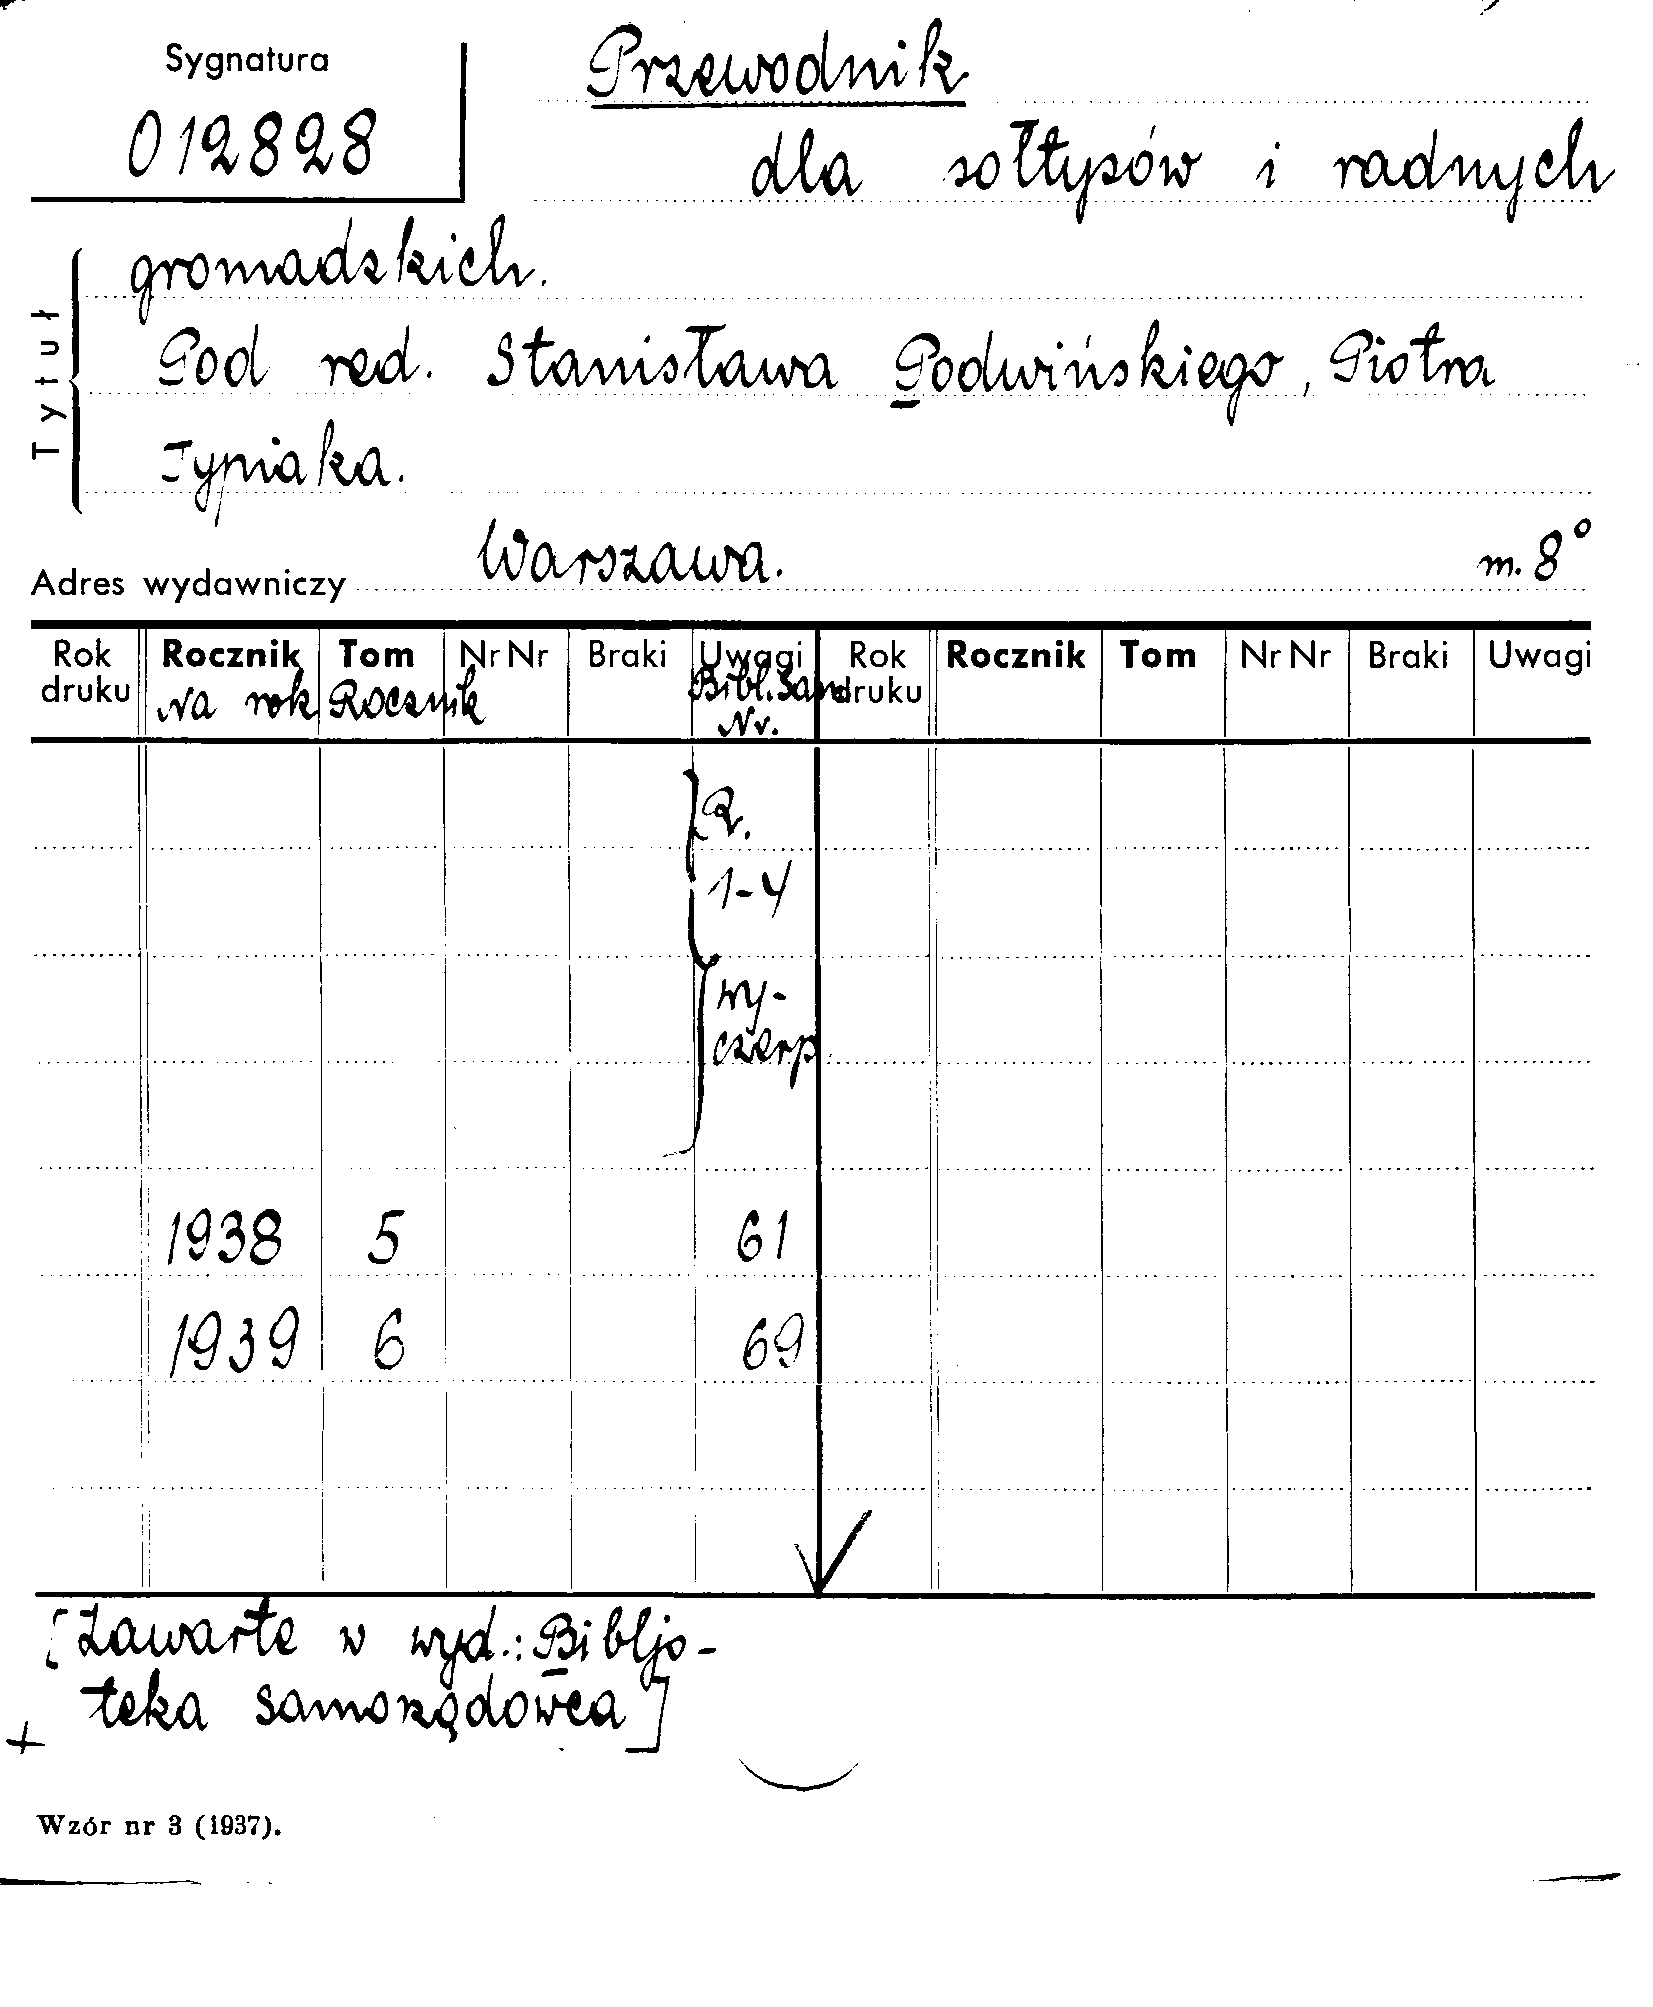 Sygnatura
012828
Przewodnik
dla sołtysów i radnych
gromadzkich.
Pod red. Stanisława Podwińskiego, Piotra
Typiaka.
Tytuł
Adres wydawniczy Warszawa. m. 8°
Rok druku Rocznik Tom Nr Nr Braki Uwagi Rok druku Rocznik Tom Nr Nr Braki Uwagi
Na rok Rocznik Bibl. Sam.
Nr.
R.
1-4
wy-
czerp
1938 5 61
1939 6 69
[Zawarte w wyd.: Bibljo-
teka samorządowca]
+
Wzór nr 3 (1937).